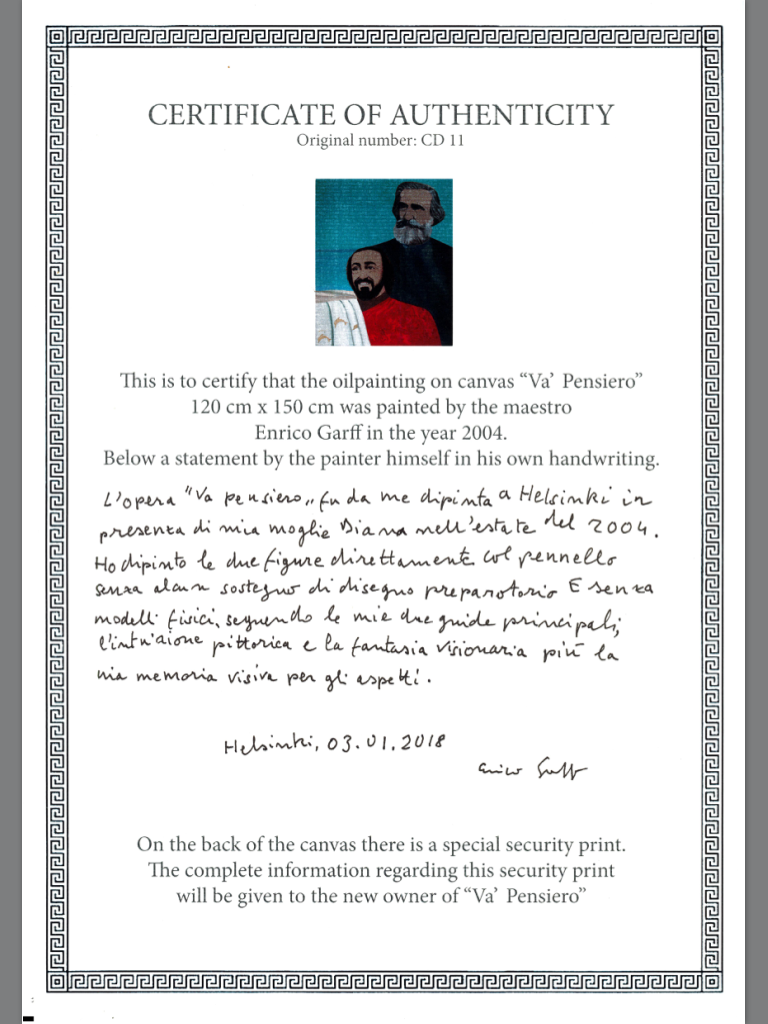 CERTIFICATE OF AUTHENTICITY
Original number: CD 11
This is to certify that the oilpainting on canvas “Va’ Pensiero”
120 cm x 150 cm was painted by the maestro
Enrico Garff in the year 2004.
Below a statement by the painter himself in his own handwriting.
L'opera "Va pensiero„ fu da me dipinta a Helsinki in
presenza di mia moglie Diana nell'estate del 2004.
Ho dipinto le due figure direttamente col pennello
senza alcun sostegno di disegno preparatorio E senza
modelli fisici, seguendo le mie due guide principali;
l'intuizione pittorica e la fantasia visionaria più la
mia memoria visiva per gli aspetti.
Helsinki, 03.01.2018
Enrico Garff
On the back of the canvas there is a special security print.
The complete information regarding this security print
will be given to the new owner of “Va’ Pensiero”